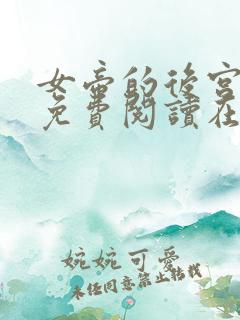 女帝的後宮
免費閱讀在
婉婉可愛
未經同意禁止轉載